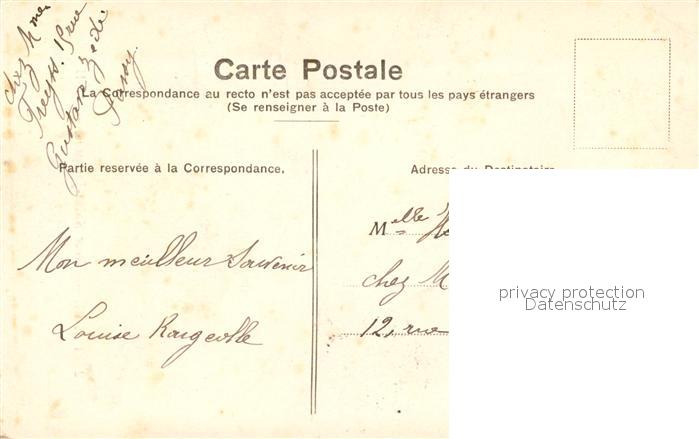 chez Mme
Freyss. 15 rue
Gustan Zédé
Passy.
Carte Postale
La Correspondance au recto n'est pas acceptée par tous les pays étrangers
(Se renseigner à la Poste)
Partie reservée à la Correspondance.
Adresse du Destinataire
Mon meilleur Souvenir
Louise
Melle
chez M
12, rue
privacy protection
Datenschutz